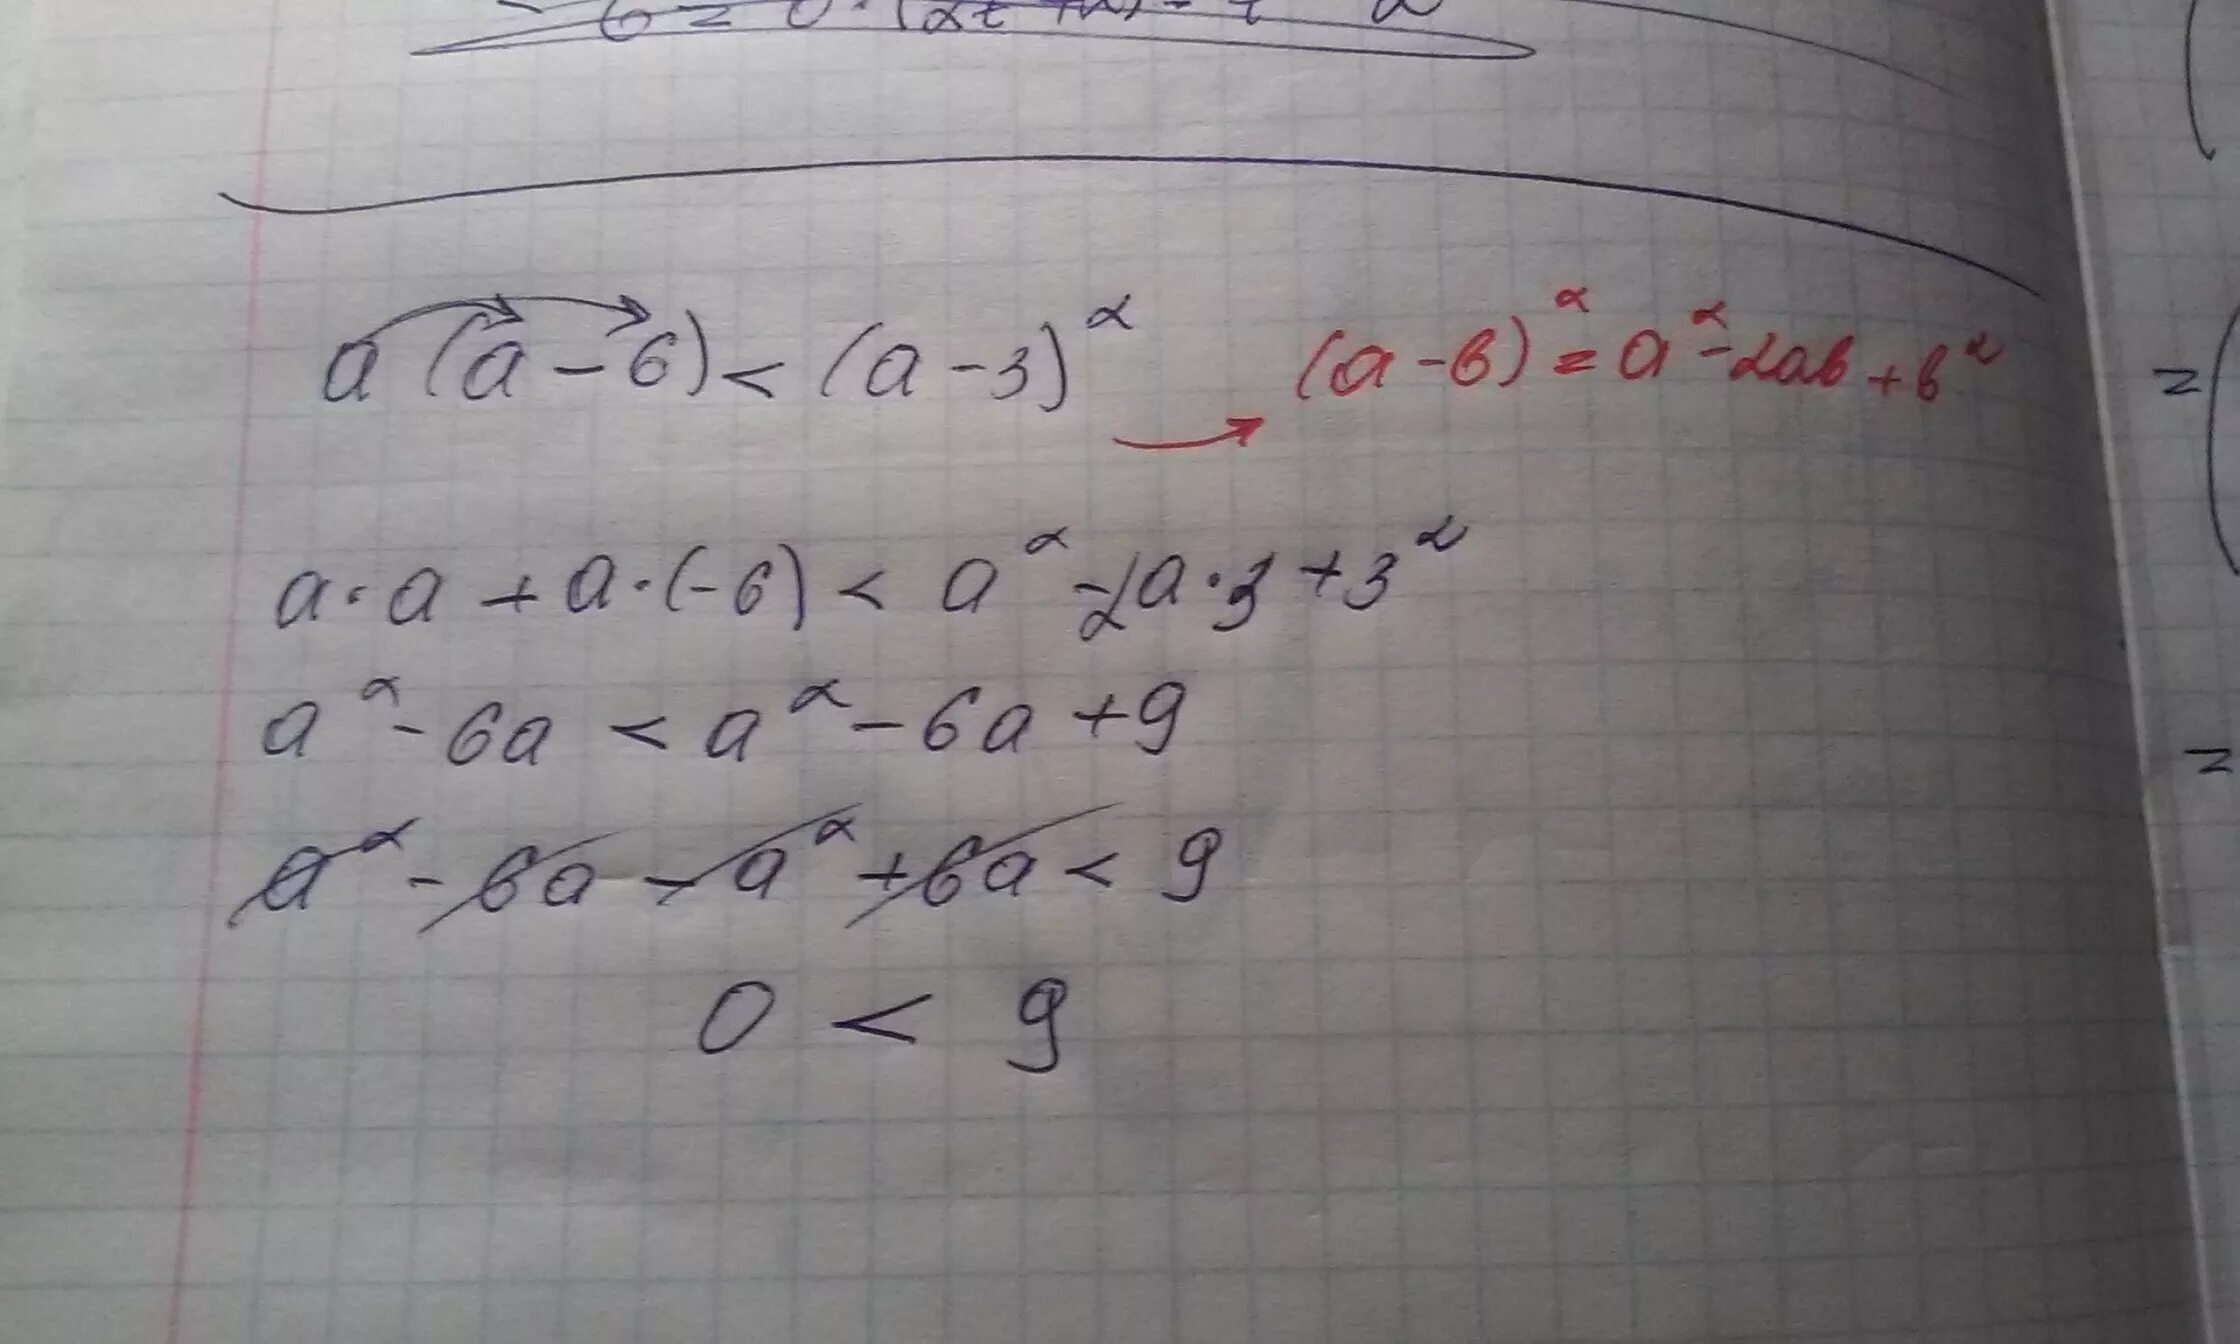 a(a-6)<(a-3)² (a-b)²=a²-2ab+b²
a·a+a·(-6)<a²-2a·3+3²
a²-6a<a²-6a+9
a²-6a-a²+6a<9
0<9
=
=